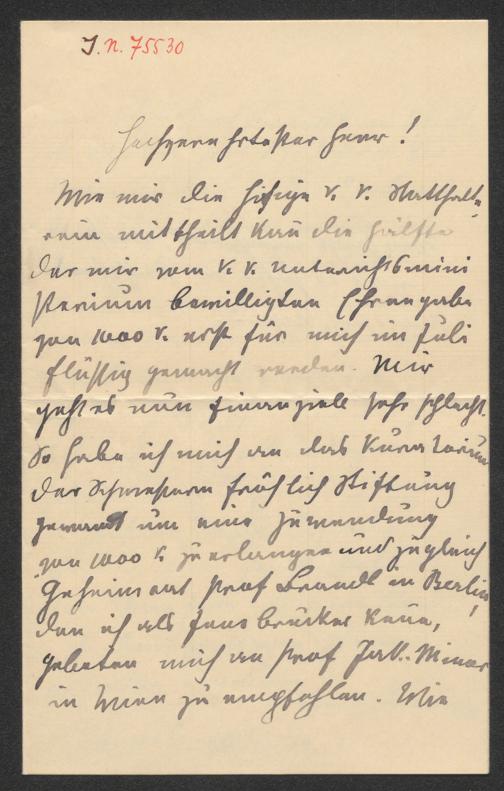 J.N. 75530
Hochverehrtester Herr!
Wie mir die hisige k. k. Statthalte-
rein mittheilt kan die Hälfte
der mir vom k. k. Unterrichtsmini
sterium bewilligten Ehrengabe
von 1000 K. erst für mich im Juli
flüssig gemacht werden. Mir
geht es nun finanziell sehr schlecht.
So habe ich mich an das Kuratorium
der Schwestern Fröhlich Stiftung
gewandt um eine Zuwendung
von 1000 K. zu erlangen und zugleich
Geheimrat Prof Brandl in Berlin,
den ich als Innsbrucker kenne,
gebeten mich an Prof Jak. Minor
in Wien zu empfehlen. Wie